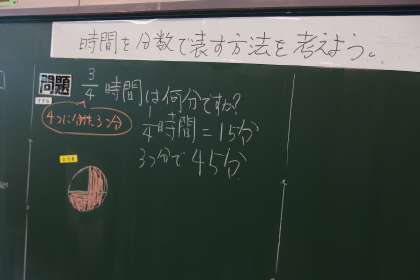 時間を分数で表す方法を考えよう。
問題 3/4 時間は何分ですか?
4つに分けた3つ分
1/4時間=15分
3つ分で 45分